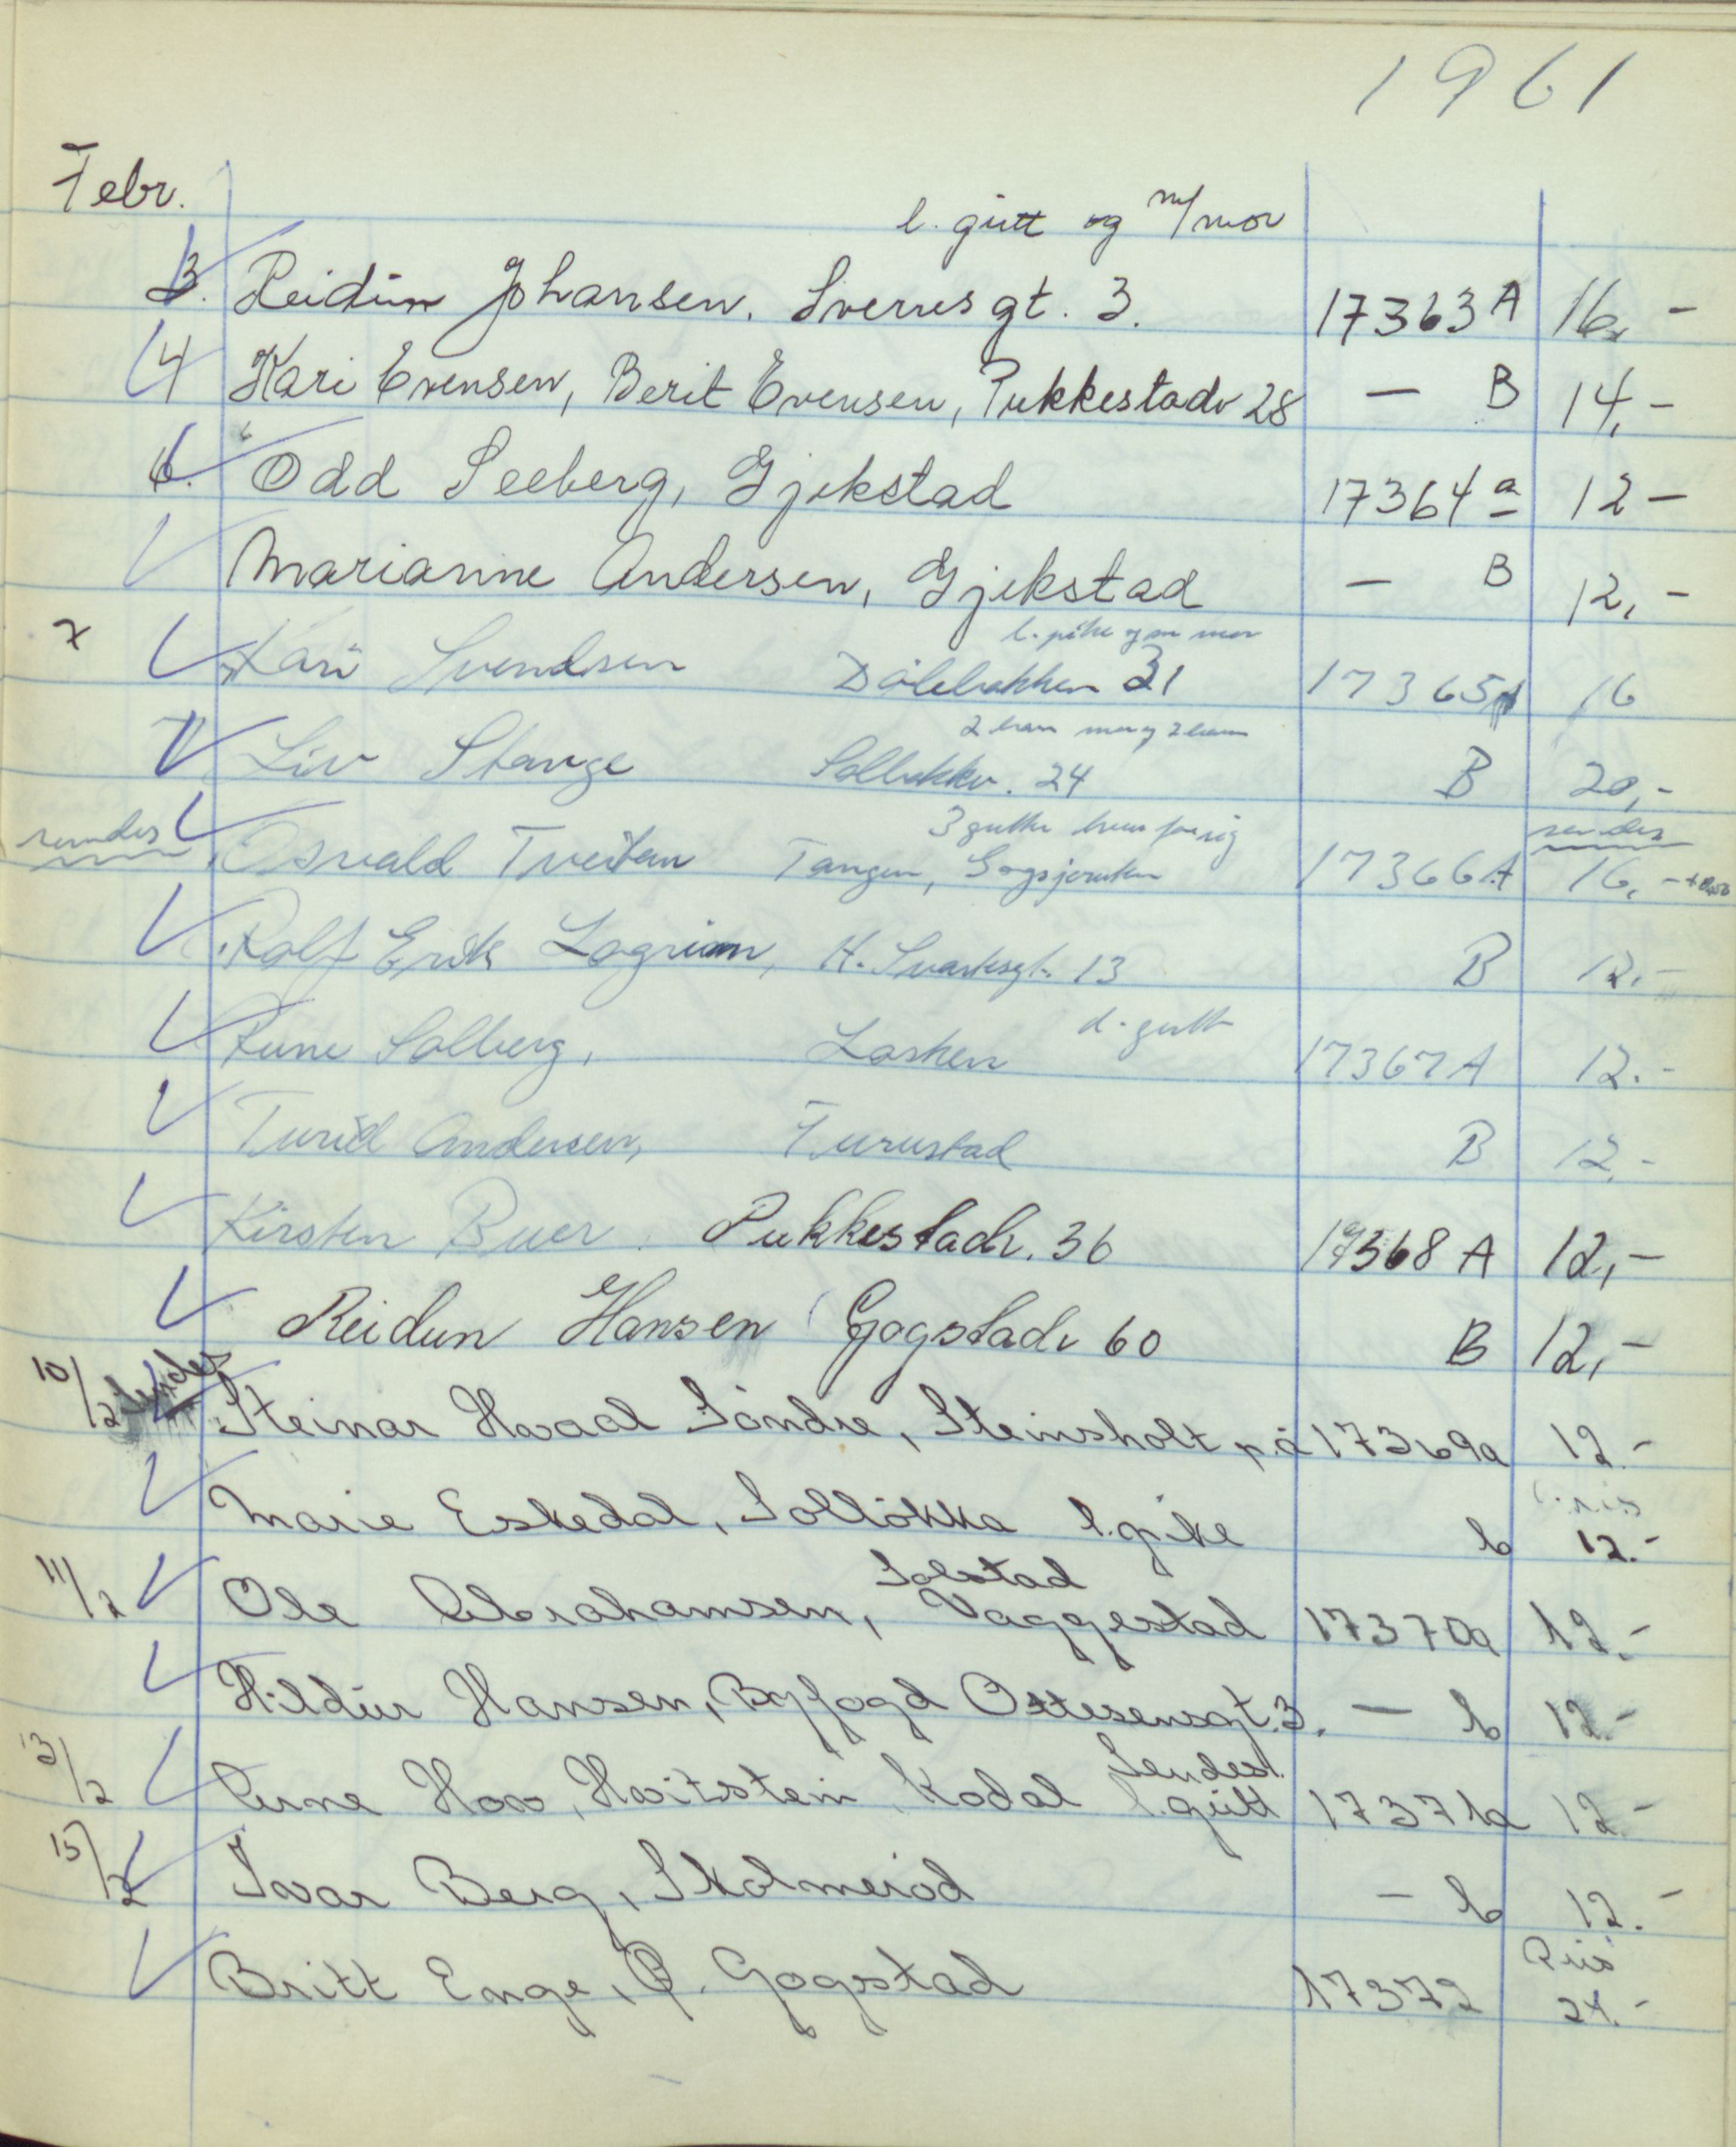 1961
Febr.
l. gutt og m/mor
3. Reidun Johansen. Sverresgt. 3. 17363 A 16,-
4 Kari Evensen, Berit Evensen, Pukkestadv 28 — B 14,-
6. Odd Seeberg, Gjekstad 17364 a 12 -
Marianne Andersen, Gjekstad — B 12,-
l. pike og m mor
7 Kari Svendsen Dølebakken 31 17365A 16
2 barn mor og 2 barn
7 Liv Stange Solbakkv. 24 B 20,-
3 gutter hver for sig
sendes Osvald Tveitan Tangen, 17366A sendes 16,-
Rolf Erik Lagrim, H. Svartesgt. 13 B 12.-
Rune Solberg, Lasken d. gutt 17367A 12.-
Turid Andersen, Furustad B 12.-
Kirsten Buer. Pukkestadv. 36 17368 A 12,-
Reidun Hansen Gogstadv 60 B 12,-
10/2 sendes Steinar Hvaal Söndre, Steinsholt p.å 17369a 12.-
Marie Eskedal, Solløkka l. pike b 12.-
Solstad
11/2 Ole Abrahamsen, Vaggestad 17370a 12.-
Hildur Hansen, Byfogd Ottesensgt. 3. — b 12.-
Sendes!
13/2 Arne Hov, Hvitstein Kodal l. gutt 17371a 12.-
15/2 Ivar Berg, Skolmerød — b 12.-
Britt Enge, Ø. Gogstad 17372 Pris 24.-